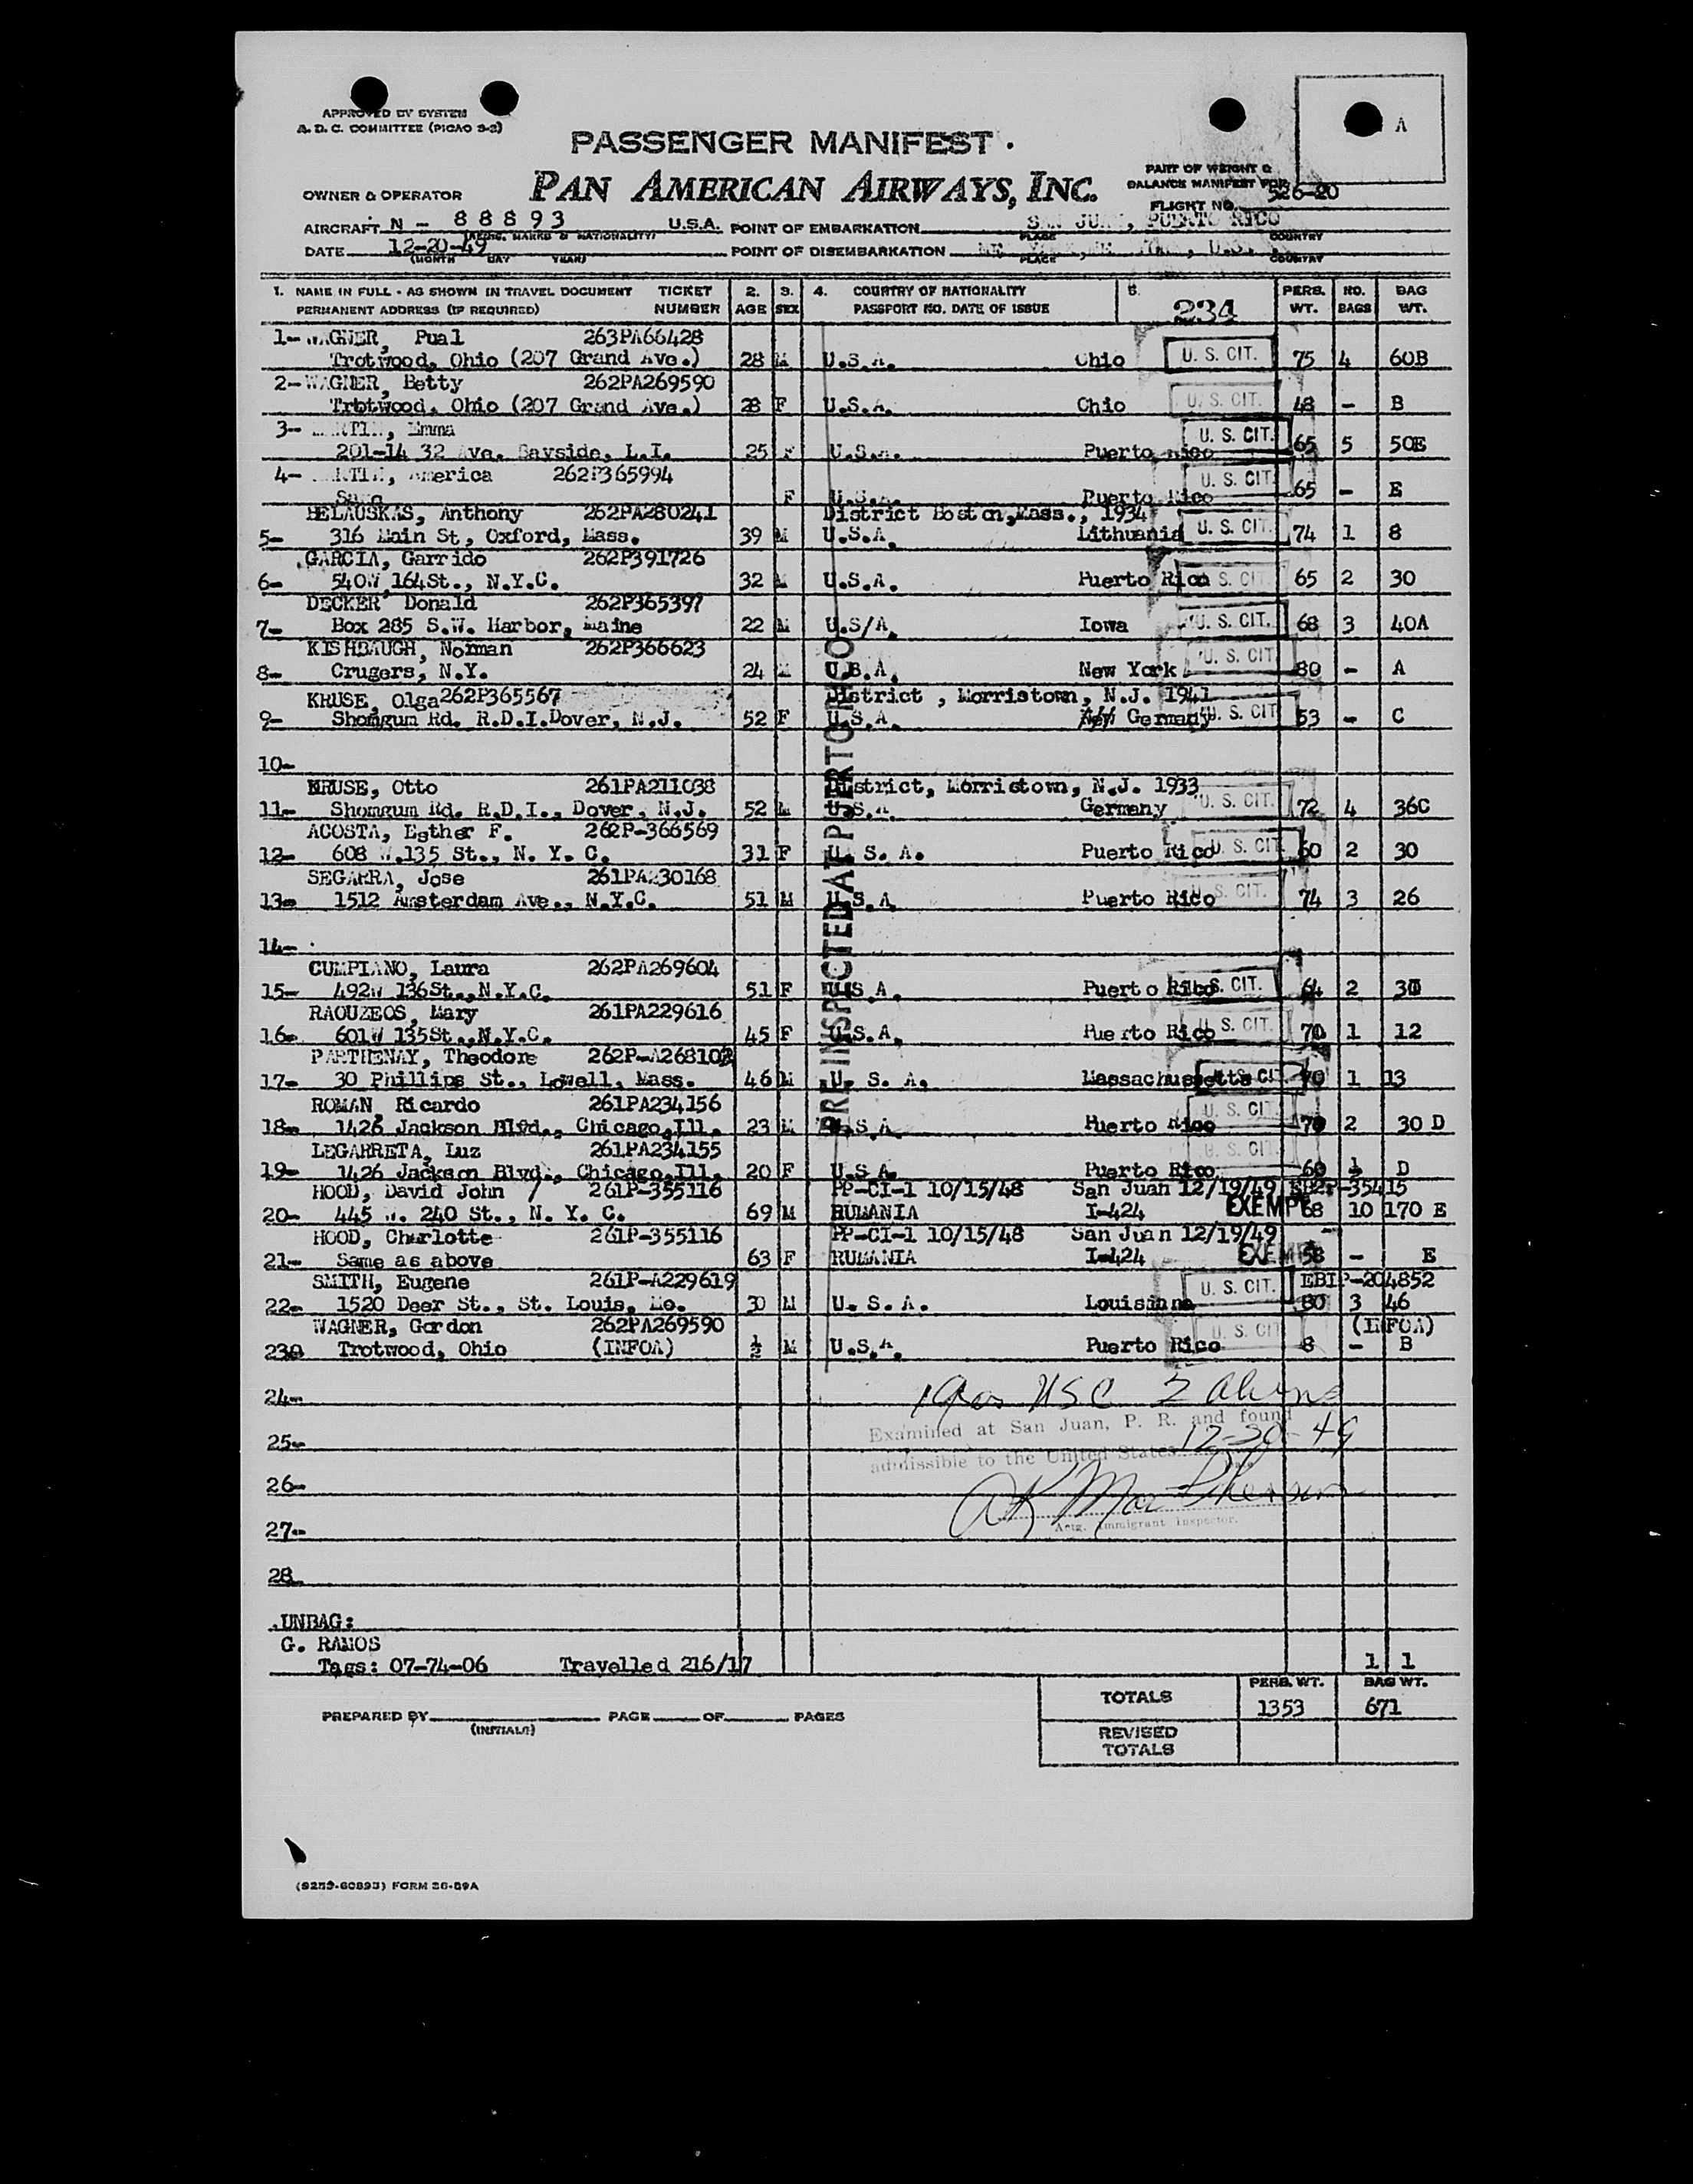 APPROVED BY SYSTEM
A. D. C. COMMITTEE (PICAO 3-2)
A
PASSENGER MANIFEST
PAN AMERICAN AIRWAYS, INC.
PART OF WEIGHT &
BALANCE MANIFEST FOR
FLIGHT NO. 526-20
OWNER & OPERATOR
AIRCRAFT N - 88893 U.S.A. POINT OF EMBARKATION SAN JUAN, PUERTO RICO
(REGIS. MARKS & NATIONALITY) PLACE COUNTRY
DATE 12-20-49 POINT OF DISEMBARKATION
(MONTH DAY YEAR) PLACE COUNTRY
1. NAME IN FULL - AS SHOWN IN TRAVEL DOCUMENT TICKET 2. 3. 4. COUNTRY OF NATIONALITY 5. PERS. NO. BAG
PERMANENT ADDRESS (IF REQUIRED) NUMBER AGE SEX PASSPORT NO. DATE OF ISSUE 234 WT. BAGS WT.
1- WAGNER, Pual 263PA66428
Trotwood, Ohio (207 Grand Ave.) 28 M U.S.A. Ohio U. S. CIT. 75 4 60B
2- WAGNER, Betty 262PA269590
Trotwood, Ohio (207 Grand Ave.) 28 F U.S.A. Ohio U. S. CIT. 48 - B
3- MARTIN, Emma
201-14 32 Ave. Bayside, L.I. 25 F U.S.A. Puerto Rico U. S. CIT. 65 5 50E
4- MARTIN, America 262P365994
Same F U.S.A. Puerto Rico U. S. CIT. 65 - E
BELAUSKAS, Anthony 262PA280241 District Boston,Mass., 1934
5- 316 Main St, Oxford, Mass. 39 M U.S.A. Lithuania U. S. CIT. 74 1 8
GARCIA, Garrido 262P391726
6- 540W 164St., N.Y.C. 32 M U.S.A. Puerto Rico U. S. CIT. 65 2 30
DECKER Donald 262P365397
7- Box 285 S.W. Harbor, Maine 22 M U.S/A. Iowa U. S. CIT. 68 3 40A
KISHBAUGH, Norman 262P366623
8- Crugers, N.Y. 24 M U.S.A. New York U. S. CIT. 80 - A
KRUSE, Olga 262P365567 District , Morristown, N.J. 1941
9- Shomgum Rd. R.D.I.Dover, N.J. 52 F U.S.A. Germany U. S. CIT. 53 - C
10-
KRUSE, Otto 261PA211038 District, Morristown, N.J. 1933
11- Shomgum Rd. R.D.I., Dover, N.J. 52 M U.S.A. Germany U. S. CIT. 72 4 36C
ACOSTA, Esther F. 262P-366569
12- 608 W.135 St., N. Y. C. 31 F U. S. A. Puerto Rico U. S. CIT. 60 2 30
SEGARRA, Jose 261PA230168
13- 1512 Amsterdam Ave., N.Y.C. 51 M U.S.A. Puerto Rico U. S. CIT. 74 3 26
14-
CUMPIANO, Laura 262PA269604
15- 492W 136St.,N.Y.C. 51 F U.S.A. Puerto Rico U. S. CIT. 64 2 30
RAOUZEOS, Mary 261PA229616
16- 601W 135St.,N.Y.C. 45 F U.S.A. Puerto Rico U. S. CIT. 70 1 12
PARTHENAY, Theodore 262P-A268102
17- 30 Phillips St., Lowell, Mass. 46 M U. S. A. Massachussetts U. S. CIT. 70 1 13
ROMAN, Ricardo 261PA234156
18- 1426 Jackson Blvd., Chicago,Ill. 23 M U.S.A. Puerto Rico U. S. CIT. 70 2 30 D
LEGARRETA, Luz 261PA234155
19- 1426 Jackson Blvd., Chicago,Ill. 20 F U.S.A. Puerto Rico U. S. CIT. 60 1 D
HOOD, David John 261P-355116 PP-CI-1 10/15/48 San Juan 12/19/49
20- 445 W. 240 St., N. Y. C. 69 M RUMANIA I-424 EXEMPT 68 10 170 E
HOOD, Charlotte 261P-355116 PP-CI-1 10/15/48 San Juan 12/19/49
21- Same as above 63 F RUMANIA I-424 EXEMPT 58 - E
SMITH, Eugene 261P-A229619 U. S. CIT. EBIP-204852
22- 1520 Deer St., St. Louis, Mo. 30 M U. S. A. Louisinna 80 3 46
WAGNER, Gordon 262PA269590 (INFOA)
23 Trotwood, Ohio (INFOA) ½ M U.S.A. Puerto Rico U. S. CIT. 8 - B
PRE-INSPECTED AT PUERTO RICO
24-
USC 2 aliens
Examined at San Juan, P. R. and found
25-
12-20-49
admissible to the United States
26-
27-
Actg. Immigrant Inspector.
28
UNBAG:
G. RAMOS
Tags: 07-74-06 Travelled 216/17 1 1
PERS. WT. BAG WT.
TOTALS 1353 671
PREPARED BY PAGE OF PAGES
(INITIALS)
REVISED
TOTALS
(9259-60893) FORM 26-89A